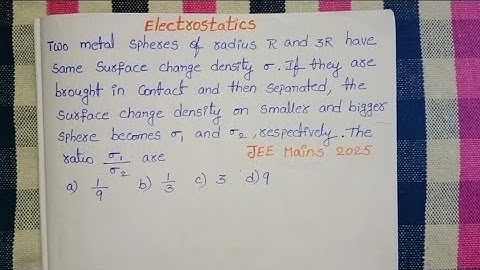 Electrostatics
Two metal spheres of radius R and 3R have
same surface change density σ. If they are
brought in contact and then separated, the
surface change density on smaller and bigger
sphere becomes σ₁ and σ₂, respectively. The
ratio σ₁/σ₂ are JEE Mains 2025
a) 1/9 b) 1/3 c) 3 d) 9